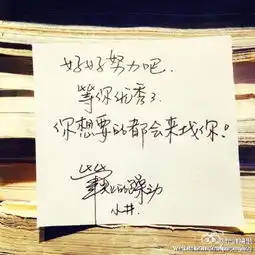 好好努力吧.
等你优秀了.
你想要的都会来找你。
笔尖上的躁动
小井.